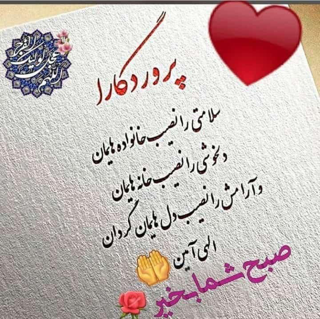 اللهم عجل لولیک الفرج
پروردگارا
سلامتی را نصیب خانواده هایمان
دلخوشی را نصیب خانه هایمان
و آرامش را نصیب دل هایمان گردان
الهی آمین
صبح شما بخیر